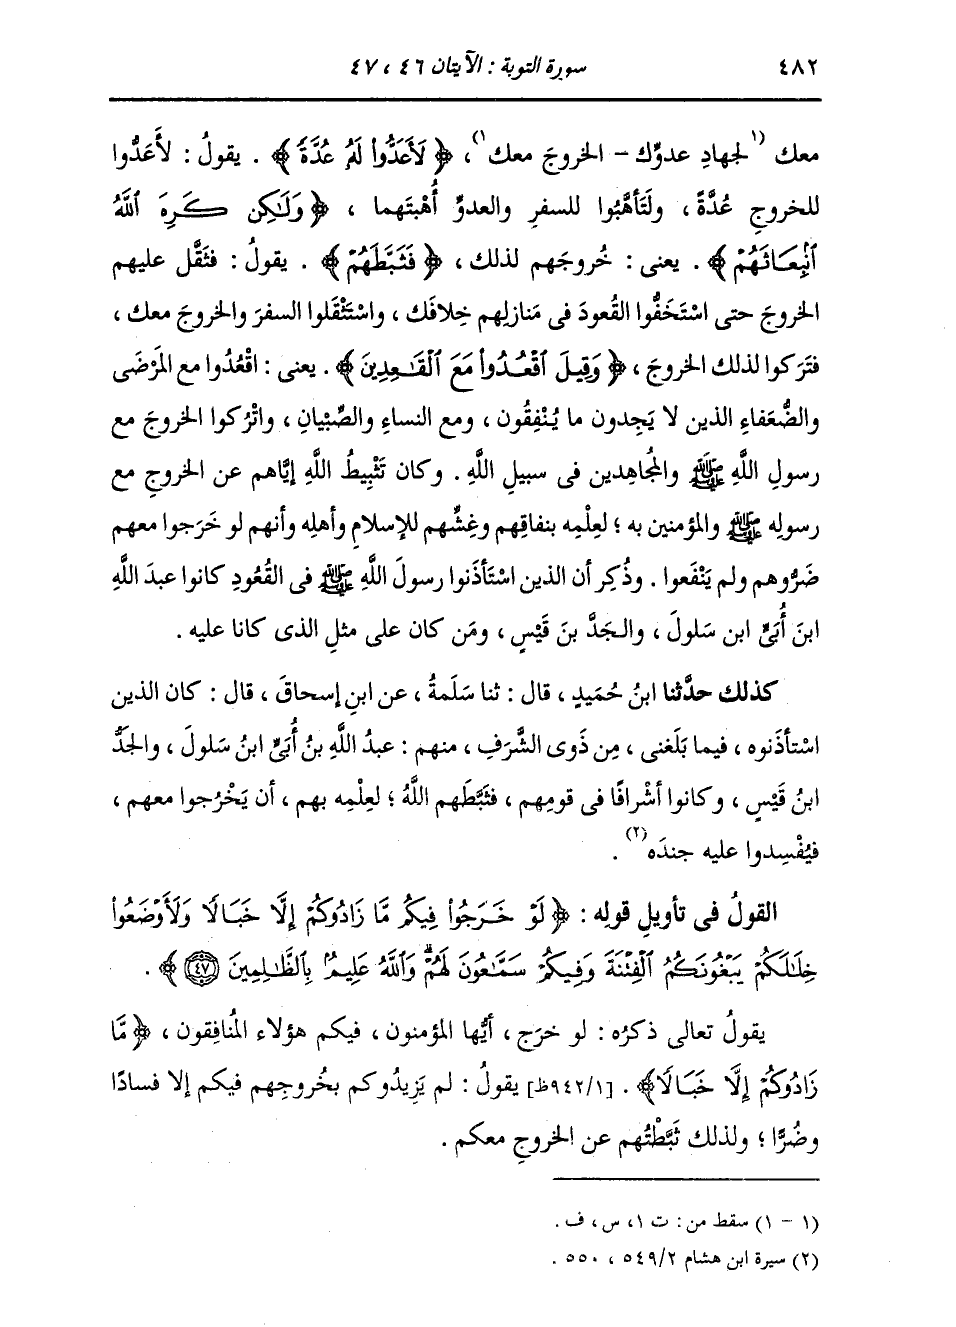 ٤٨٢ سورة التوبة : الآيتان ٤٦ ، ٤٧
معك (١) لجهادِ عدوِّك – الخروجَ معك ١) ، ﴿ لَأَعَدُّوا۟ لَهُۥ عُدَّةً ﴾ . يقولُ : لأَعَدُّوا
للخروجِ عُدَّةً ، ولَتَأَهَّبُوا للسفرِ والعدوِّ أُهْبتَهما ، ﴿ وَلَٰكِن كَرِهَ ٱللَّهُ
ٱنۢبِعَاثَهُمْ ﴾ . يعنى : خُروجَهم لذلك ، ﴿ فَثَبَّطَهُمْ ﴾ . يقولُ : فثَقَّل عليهم
الخروجَ حتى اسْتَخَفُّوا القُعودَ فى مَنازلِهم خِلافَك ، واسْتَثْقَلوا السفرَ والخروجَ معك ،
فتَركوا لذلك الخروجَ ، ﴿ وَقِيلَ ٱقْعُدُوا۟ مَعَ ٱلْقَٰعِدِينَ ﴾ . يعنى : اقْعُدُوا مع المَرْضَى
والضُّعَفاءِ الذين لا يَجِدون ما يُنْفِقُون ، ومع النساءِ والصِّبْيانِ ، واتْرُكوا الخروجَ مع
رسولِ اللَّهِ ﷺ والمُجاهِدين فى سبيلِ اللَّهِ . وكان تَثْبِيطُ اللَّهِ إيَّاهم عن الخروجِ مع
رسولِه ﷺ والمؤمنين به ؛ لعِلْمِه بنفاقِهم وغِشِّهم للإسلامِ وأهلِه وأنهم لو خَرَجوا معهم
ضَرُّوهم ولم يَنْفَعوا . وذُكِر أن الذين اسْتَأْذَنوا رسولَ اللَّهِ ﷺ فى القُعُودِ كانوا عبدَ اللَّهِ
ابنَ أُبَىٍّ ابن سَلولَ ، والجَدَّ بنَ قَيْسٍ ، ومَن كان على مثلِ الذى كانا عليه .
كذلك حدَّثنا ابنُ حُمَيدٍ ، قال : ثنا سَلَمةُ ، عن ابنِ إسحاقَ ، قال : كان الذين
اسْتأذَنوه ، فيما بَلَغنى ، مِن ذَوِى الشَّرَفِ ، منهم : عبدُ اللَّهِ بنُ أُبَىٍّ ابنُ سَلولَ ، والجَدُّ
ابنُ قَيْسٍ ، وكانوا أشْرافًا فى قومِهم ، فثَبَّطَهم اللَّهُ ؛ لعِلْمِه بهم ، أن يَخْرُجوا معهم ،
فيُفْسِدوا عليه جندَه (٢) .
القولُ فى تأويلِ قولِه : ﴿ لَوْ خَرَجُوا۟ فِيكُم مَّا زَادُوكُمْ إِلَّا خَبَالًا وَلَأَوْضَعُوا۟
خِلَٰلَكُمْ يَبْغُونَكُمُ ٱلْفِتْنَةَ وَفِيكُمْ سَمَّٰعُونَ لَهُمْ ۗ وَٱللَّهُ عَلِيمٌۢ بِٱلظَّٰلِمِينَ ٤٧ ﴾ .
يقولُ تعالى ذكرُه : لو خرَج ، أيُّها المؤمنون ، فيكم هؤلاء المُنافِقون ، ﴿ مَّا
زَادُوكُمْ إِلَّا خَبَالًا ﴾ . [٩٤٢/١ظ] يقولُ : لم يَزِيدُوكم بخُروجِهم فيكم إلا فسادًا
وضُرًّا ؛ ولذلك ثَبَّطْتُهم عن الخروجِ معكم .
(١ – ١) سقط من : ت ١، س ، ف .
(٢) سيرة ابن هشام ٥٤٩/٢ ، ٥٥٠ .